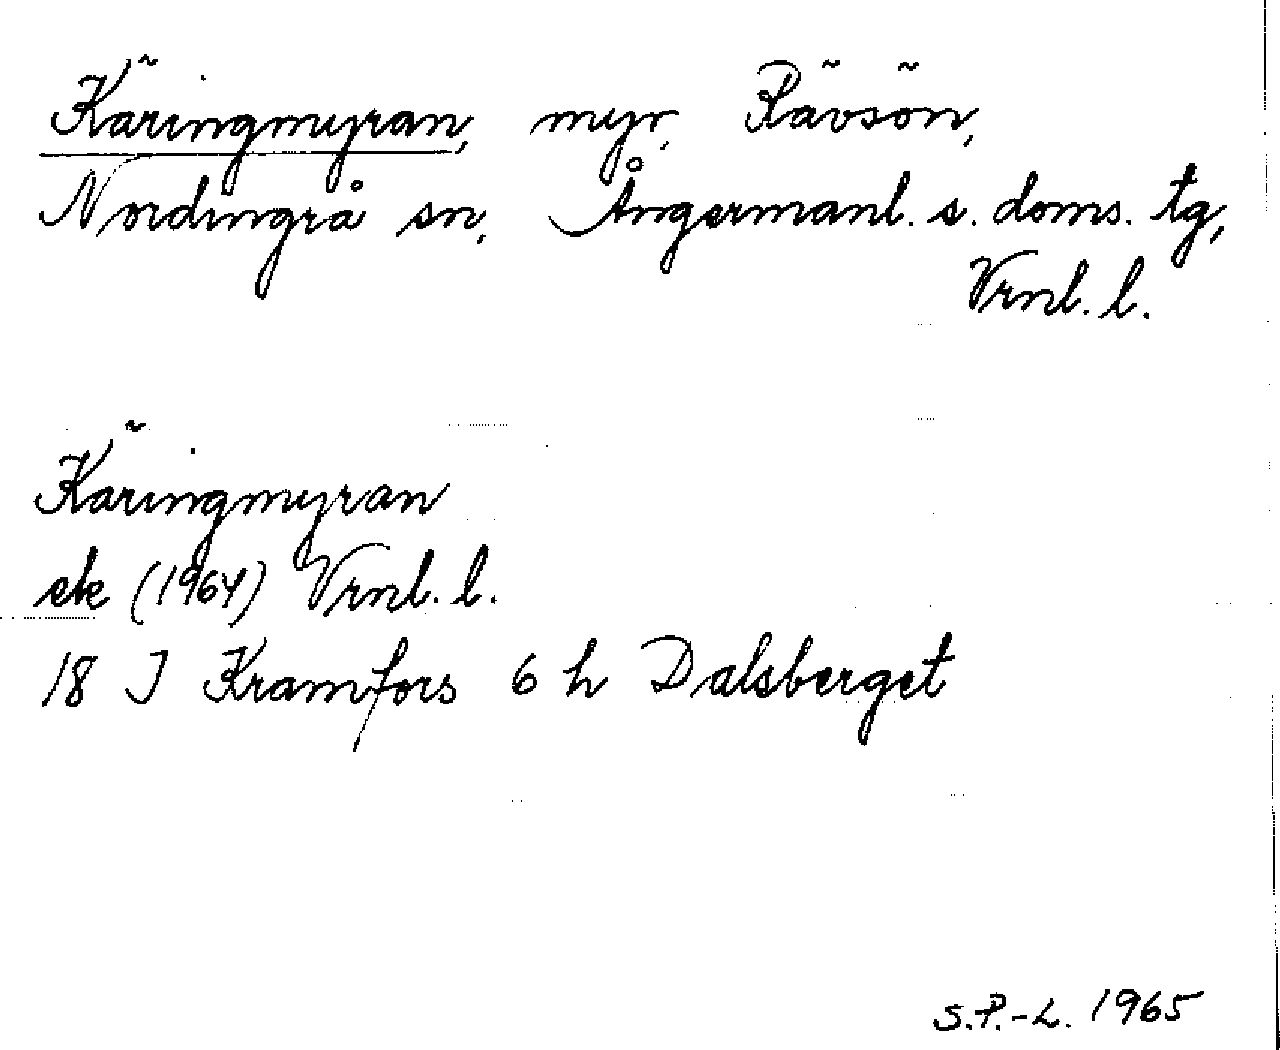 Käringmyran, myr, Rävsön,
Nordingrå sn, Ångermanl. s. doms. tg,
Vrnl. l.
Käringmyran
ek (1964) Vrnl. l.
18 J Kramfors 6 h Dalsberget
S.P.-L. 1965